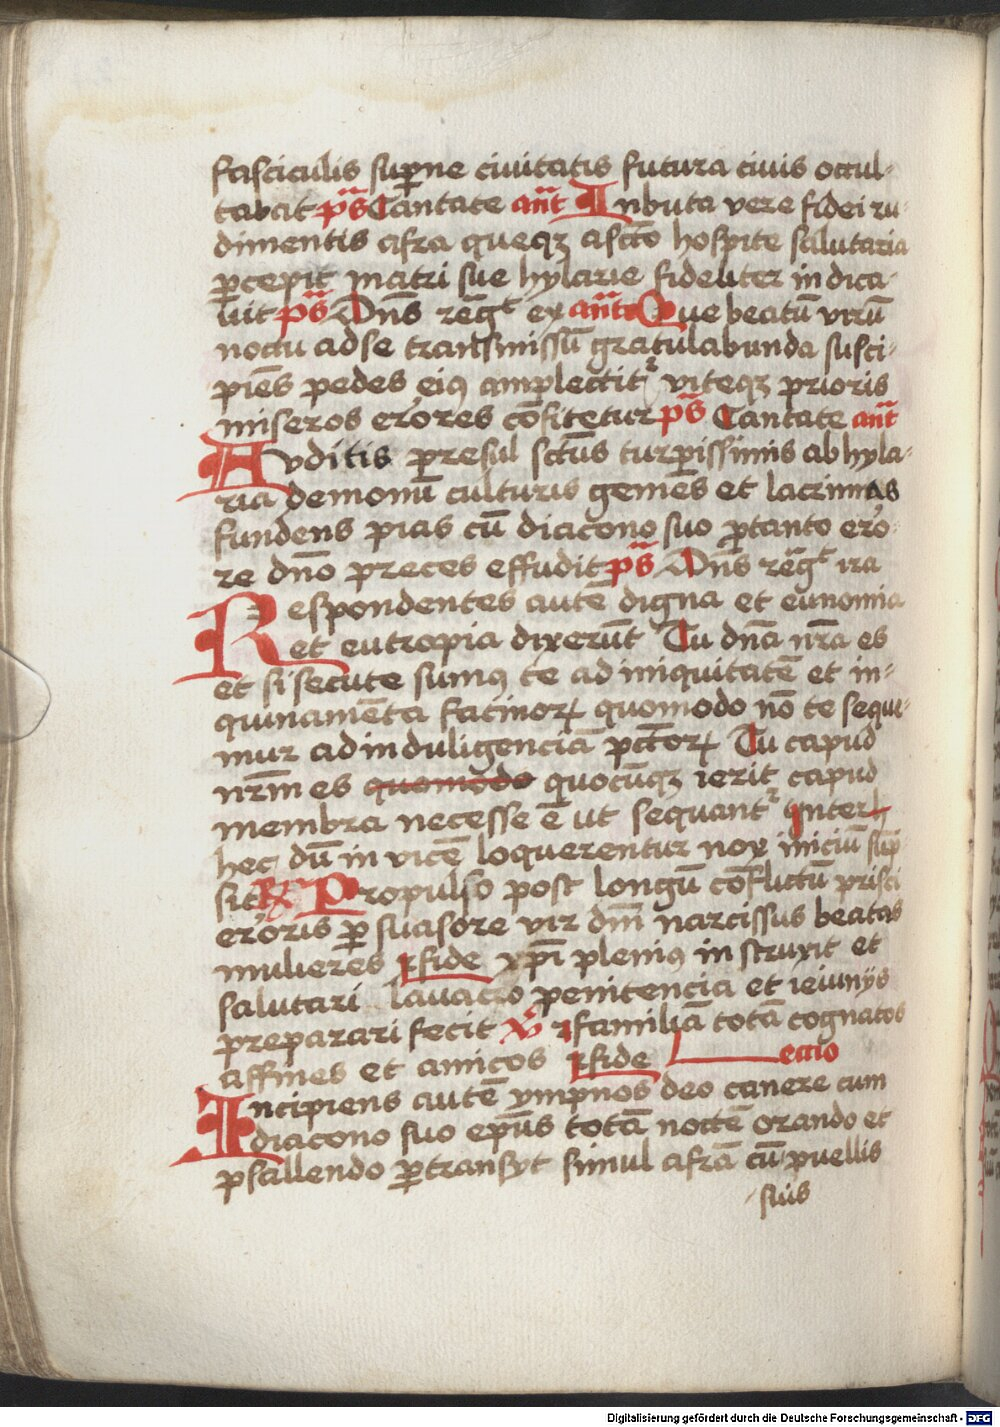 fasciculis sup̄ne ciuitatis futura ciuis occul-
tabat ps̄ Cantate ant̄ Inbuta vere fidei ru-
dimentis afra queqꝫ a sc̄o hospite salutaria
ꝑcepit matri sue hylarie fideliter indica-
uit ps̄ Dn̄s reḡt ex ant̄ Que beatū virū
noctu ad se transmissū gratulabunda susci-
piēs pedes eiꝰ amplectit᷑ viteqꝫ prioris
miseros erͦores cōfitetur ps̄ Cantate ant̄
Avditis presul sct̄us turpissimis ab hyla-
ria demonū culturis gemēs et lacrimas
fundens pias cū diacono suo ꝓ tanto erro-
re dn̄o preces effudit ps̄ Dn̄s reḡt ira
Respondentes autē digna et eunomia
et eutropia dixerūt Tu dn̄a nr̄a es
et si secute sumꝰ te ad iniquitatē et in-
quinamēta facinorꝝ quomodo nō te seque-
mur ad indulgenciā pct̄orꝝ Tu capud
nr̄m es quomodo quocūqꝫ ierit capud
membra necesse ē ut sequant᷑ Inter
hec dū in vicē loquerentur nox iniciū sūp-
sit R̷ Propulso post longū cōflictū prisci
erroris ꝑsuasore vir dn̄i narcissus beatas
mulieres ī fide xp̄i pleniꝰ instruxit et
salutari lauacro penitencia et ieiunijs
preparari fecit V̷ familiā totā cognatos
affines et amicos ī fide Leccio
Incipiens autē ympnos deo canere cum
diacono suo ep̄us totā noctē orando et
psallendo ꝑtransyt simul afrā cū puellis
suis
Digitalisierung gefördert durch die Deutsche Forschungsgemeinschaft - DFG